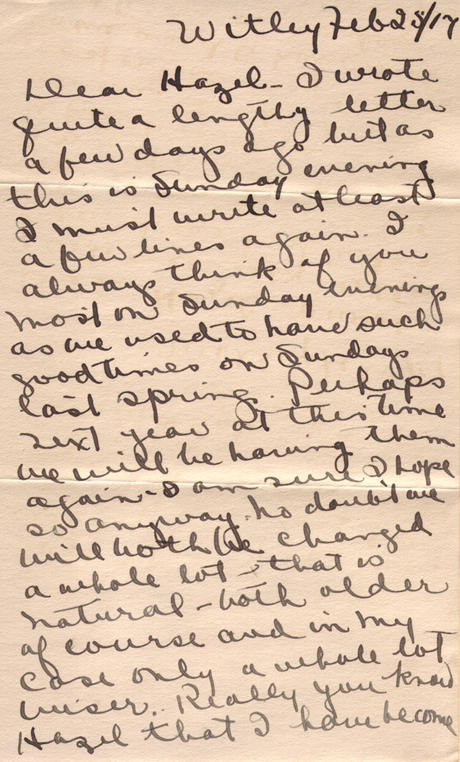 Witley Feb 25/17
Dear Hazel - I wrote
quite a lengthy letter
a few days ago but as
this is Sunday evening
I must write at least
a few lines again. I
always think of you
most on Sunday evenings
as we used to have such
good times on Sundays
last spring. Perhaps
next year at this time
we will be having them
again - I am sure I hope
so anyway. No doubt we
will both be changed
a whole lot - that is
natural - both older
of course and in my
case only a whole lot
wiser. Really you know
Hazel that I have become